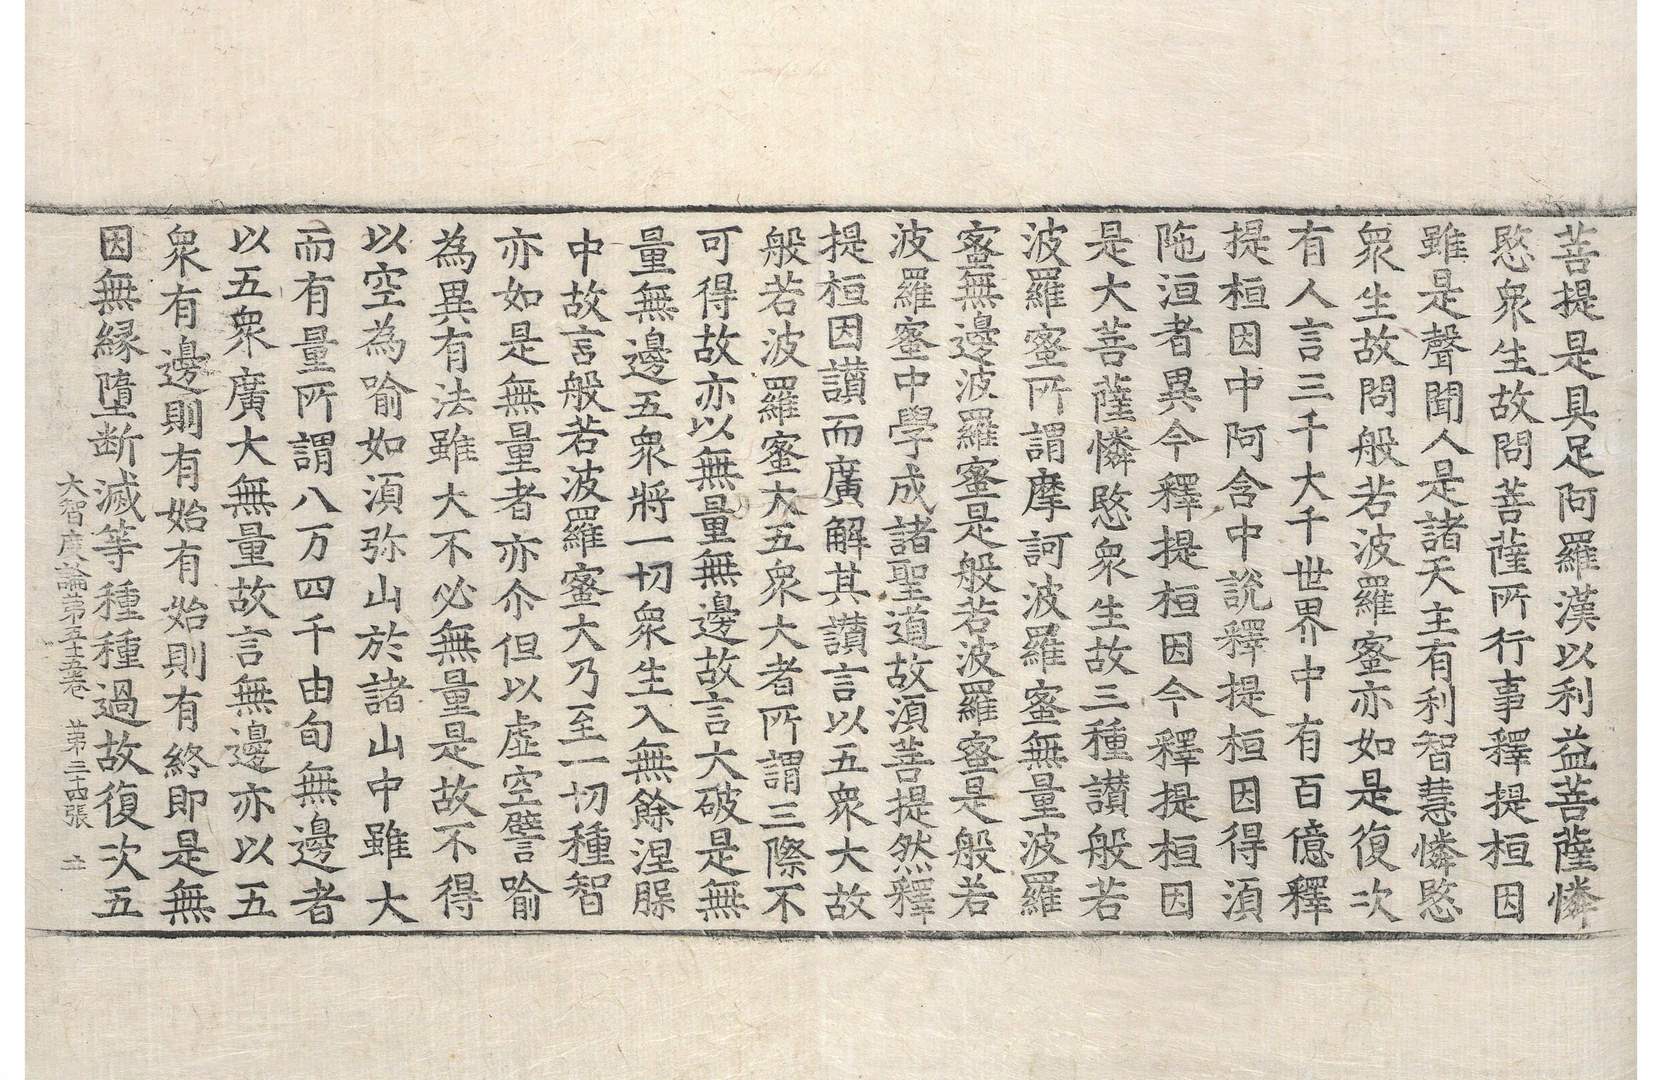 菩提是具足阿羅漢以利益菩薩憐
愍衆生故問菩薩所行事釋提桓因
雖是聲聞人是諸天主有利智慧憐愍
衆生故問般若波羅蜜亦如是復次
有人言三千大千世界中有百億釋
提桓因中阿含中說釋提桓因得湏
陁洹者異今釋提桓因今釋提桓因
是大菩薩憐愍衆生故三種讃般若
波羅蜜所謂摩訶波羅蜜無量波羅
蜜無邊波羅蜜是般若波羅蜜是般若
波羅蜜中學成諸聖道故湏菩提然釋
提桓因讃而廣解其讃言以五衆大故
般若波羅蜜大五衆大者所謂三際不
可得故亦以無量無邊故言大破是無
量無邊五衆將一切衆生入無餘涅槃
中故言般若波羅蜜大乃至一切種智
亦如是無量者亦尒但以虛空譬喻
為異有法雖大不必無量是故不得
以空為喻如湏弥山於諸山中雖大
而有量所謂八万四千由旬無邊者
以五衆廣大無量故言無邊亦以五
衆有邊則有始有始則有終即是無
因無縁墮断滅等種種過故復次五
大智度論第五十五卷 第二十四張